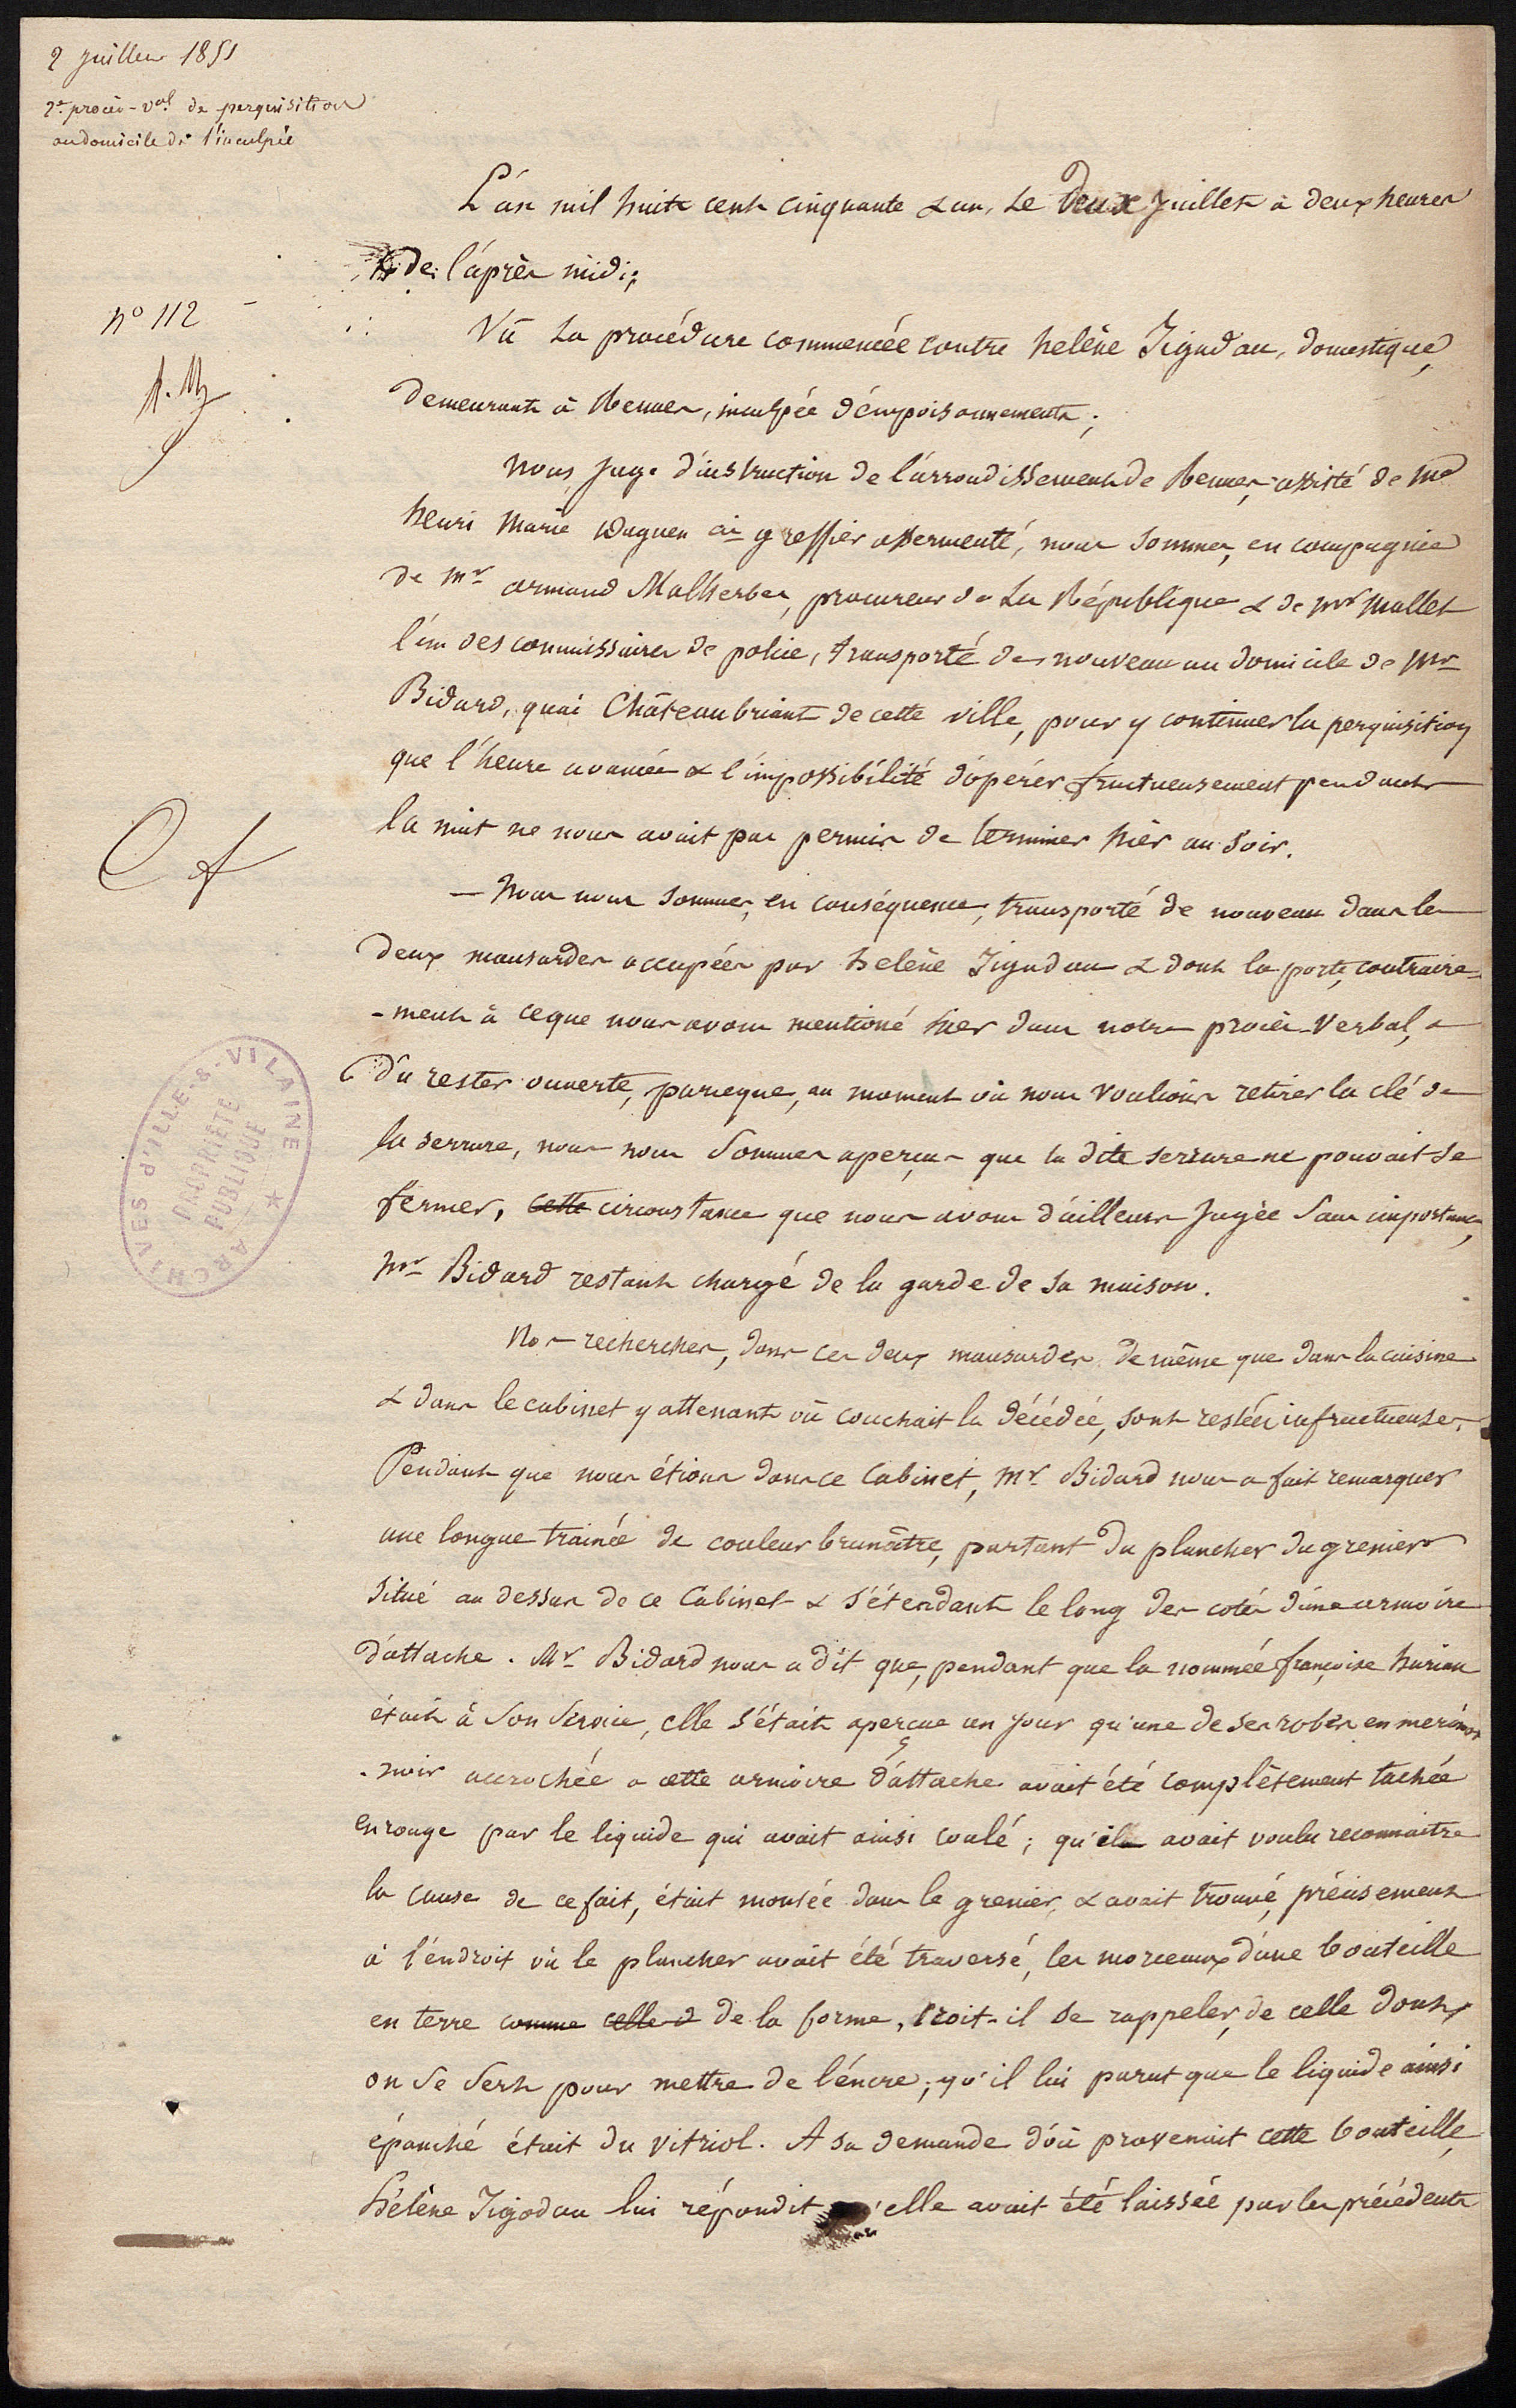 2 juillet 1851
2e procès-val de perquisition
au domicile de l'inculpée
L'an mil huit cent cinquante & un, le deux juillet à deux heures
de l'après midi;
n° 112
Vû la procédure commencée contre helène Jégadau, domestique,
demeurant à Rennes, inculpée d'empoisonnement;
nous juge d'instruction de l'arrondissement de Rennes, assisté de me
henri Marie greffier assermenté, nous sommes, en compagnie
de Mr armand Malherbe, procureur de la République & de Mr Mallet
l'un des commissaires de police, transporté de nouveau au domicile de Mr
Bidard, quai Châteaubriant de cette ville, pour y continuer la perquisition
que l'heure avancée & l'impossibilité d'opérer fructueusement pendant
la nuit ne nous avait pas permis de terminer hier au soir.
— Nous nous sommes, en conséquence, transporté de nouveau dans les
deux mansardes occupées par helène Jégadau & dont la porte, contraire-
-ment à ce que nous avons mentioné hier dans notre procès-verbal, a
dû rester ouverte, parceque, au moment où nous voulions retirer la clé de
la serrure, nous nous sommes aperçus que la dite serrure ne pouvait se
fermer, cette circonstance que nous avons d'ailleurs jugée sans importance,
Mr Bidard restant chargé de la garde de sa maison.
Nos recherches, dans ces deux mansardes de même que dans la cuisine
& dans le cabinet y attenant où couchait la décédée, sont restées infructueuses.
Pendant que nous étions dans ce Cabinet, Mr Bidard nous a fait remarquer
une longue trainée de couleur brunâtre, partant du plancher du grenier
situé au dessus de ce Cabinet & s'étendant le long des cotés d'une armoire
d'attache. Mr Bidard nous a dit que, pendant que la nommée françoise huriau
était à son service, elle s'était aperçue un jour qu'une de ses robes en merinos
noir accrochée à cette armoire d'attache avait été complètement tachée
en rouge par le liquide qui avait ainsi coulé; qu'il avait voulu reconnaitre
la cause de ce fait, était montée dans le grenier, & avait trouvé, précisement
à l'endroit où le plancher avait été traversé, les morceaux d'une bouteille
en terre comme celle d de la forme, croit-il se rappeler, de celle dont
on se sert pour mettre de l'encre; qu'il lui parut que le liquide ainsi
épanché était du vitriol. A sa demande d'où provenait cette bouteille,
Hélène Jégodau lui répondit qu'elle avait été laissée par les précédents
ARCHIVES D'ILLE-&-VILAINE
PROPRIÉTÉ
PUBLIQUE